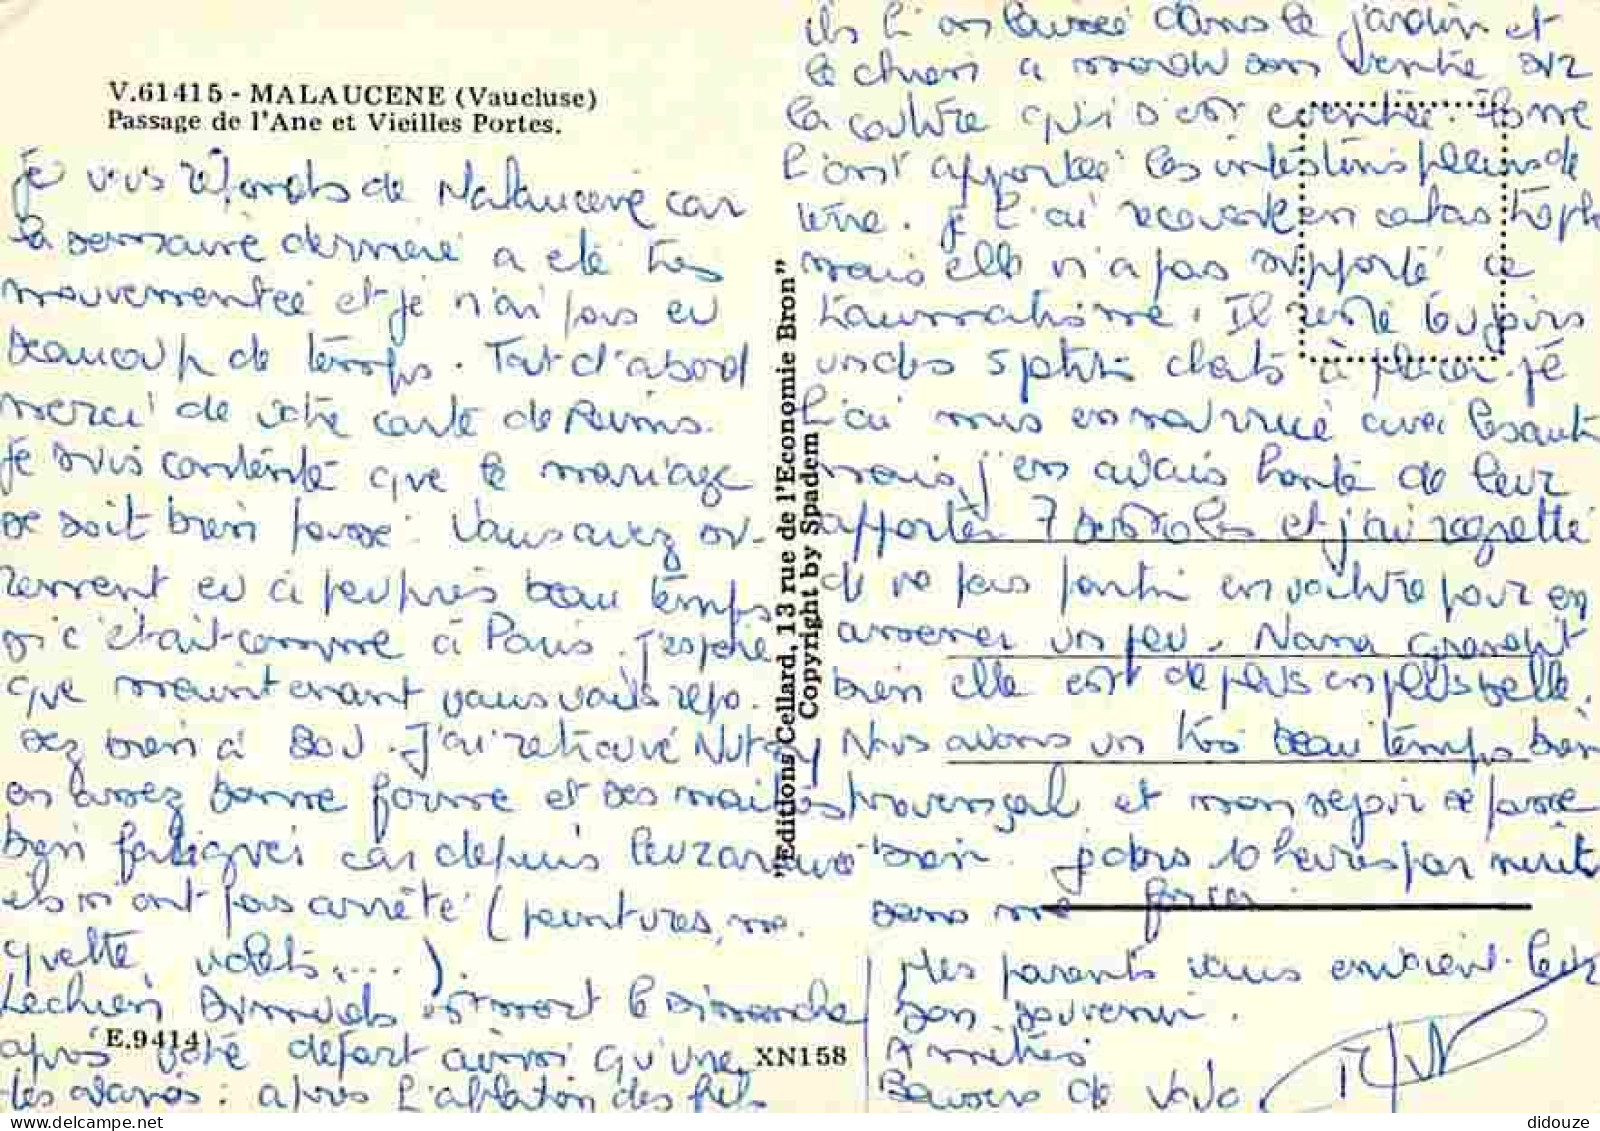 V.61415 - MALAUCENE (Vaucluse)
Passage de l'Ane et Vieilles Portes.
Je vous réponds de Malaucène car
la semaine dernière a été très
mouvementée et je n'ai pas eu
beaucoup de temps. Tout d'abord
merci de votre carte de Reims.
Je suis contente que le mariage
se soit bien passé. Vous avez su-
rement eu à peu près beau temps
si c'était comme à Paris. J'espère
que maintenant vous vous repo.
sez bien à Bou. J'ai retrouvé
en assez bonne forme et ses maîtres
bien fatigués car depuis leur arrivée
ils n'ont pas arrêté (peintures, mo.
quette, volets....).
Le chien est mort le dimanche
après votre départ ainsi qu'une
des : après l'ablation des fils
"Editions Cellard, 13 rue de l'Economie Bron"
Copyright by Spadem
E.9414
XN158
ils l'on laissée dans le jardin et
le chien a mordu son ventre sur
la couture qui s'est éventrée.
l'ont apportée les intestins pleins de
terre. je l'ai recousue en catastrophe
mais elle n'a pas supporté ce
traumatisme. Il reste toujours
un des 5 petits chats à placer. je
l'ai mis en nourrice avec les autres
mais j'en avais honte de leur
apporter 7 et j'ai regretté
de ne pas partir en voiture pour en
amener un peu. Nana grandit
bien elle est de plus en plus belle.
Nous avons un très beau temps bien
provençal et mon séjour se passe
bien. je dors 10 heures par nuit
sans me forcer.
Mes parents vous envoient leur
bon souvenir.
Amitiés
Baisers de
didouze